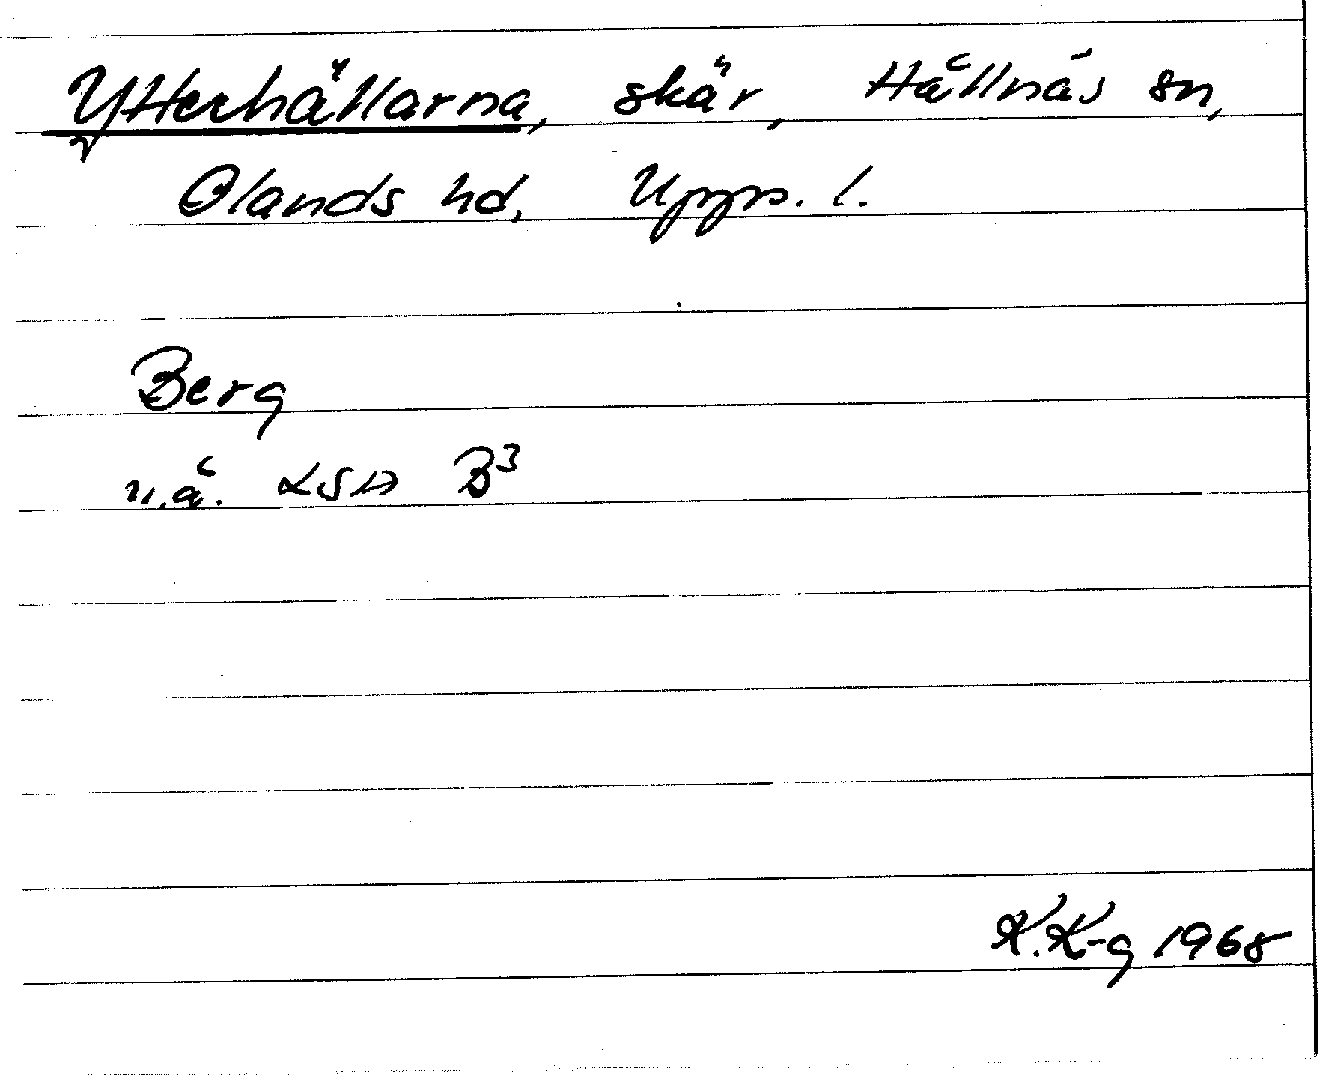 Ytterhällarna, skär, Hållnäs sn,
Olands hd, Upps. l.
Berg
u.å. LSA B³
K.K-g 1968